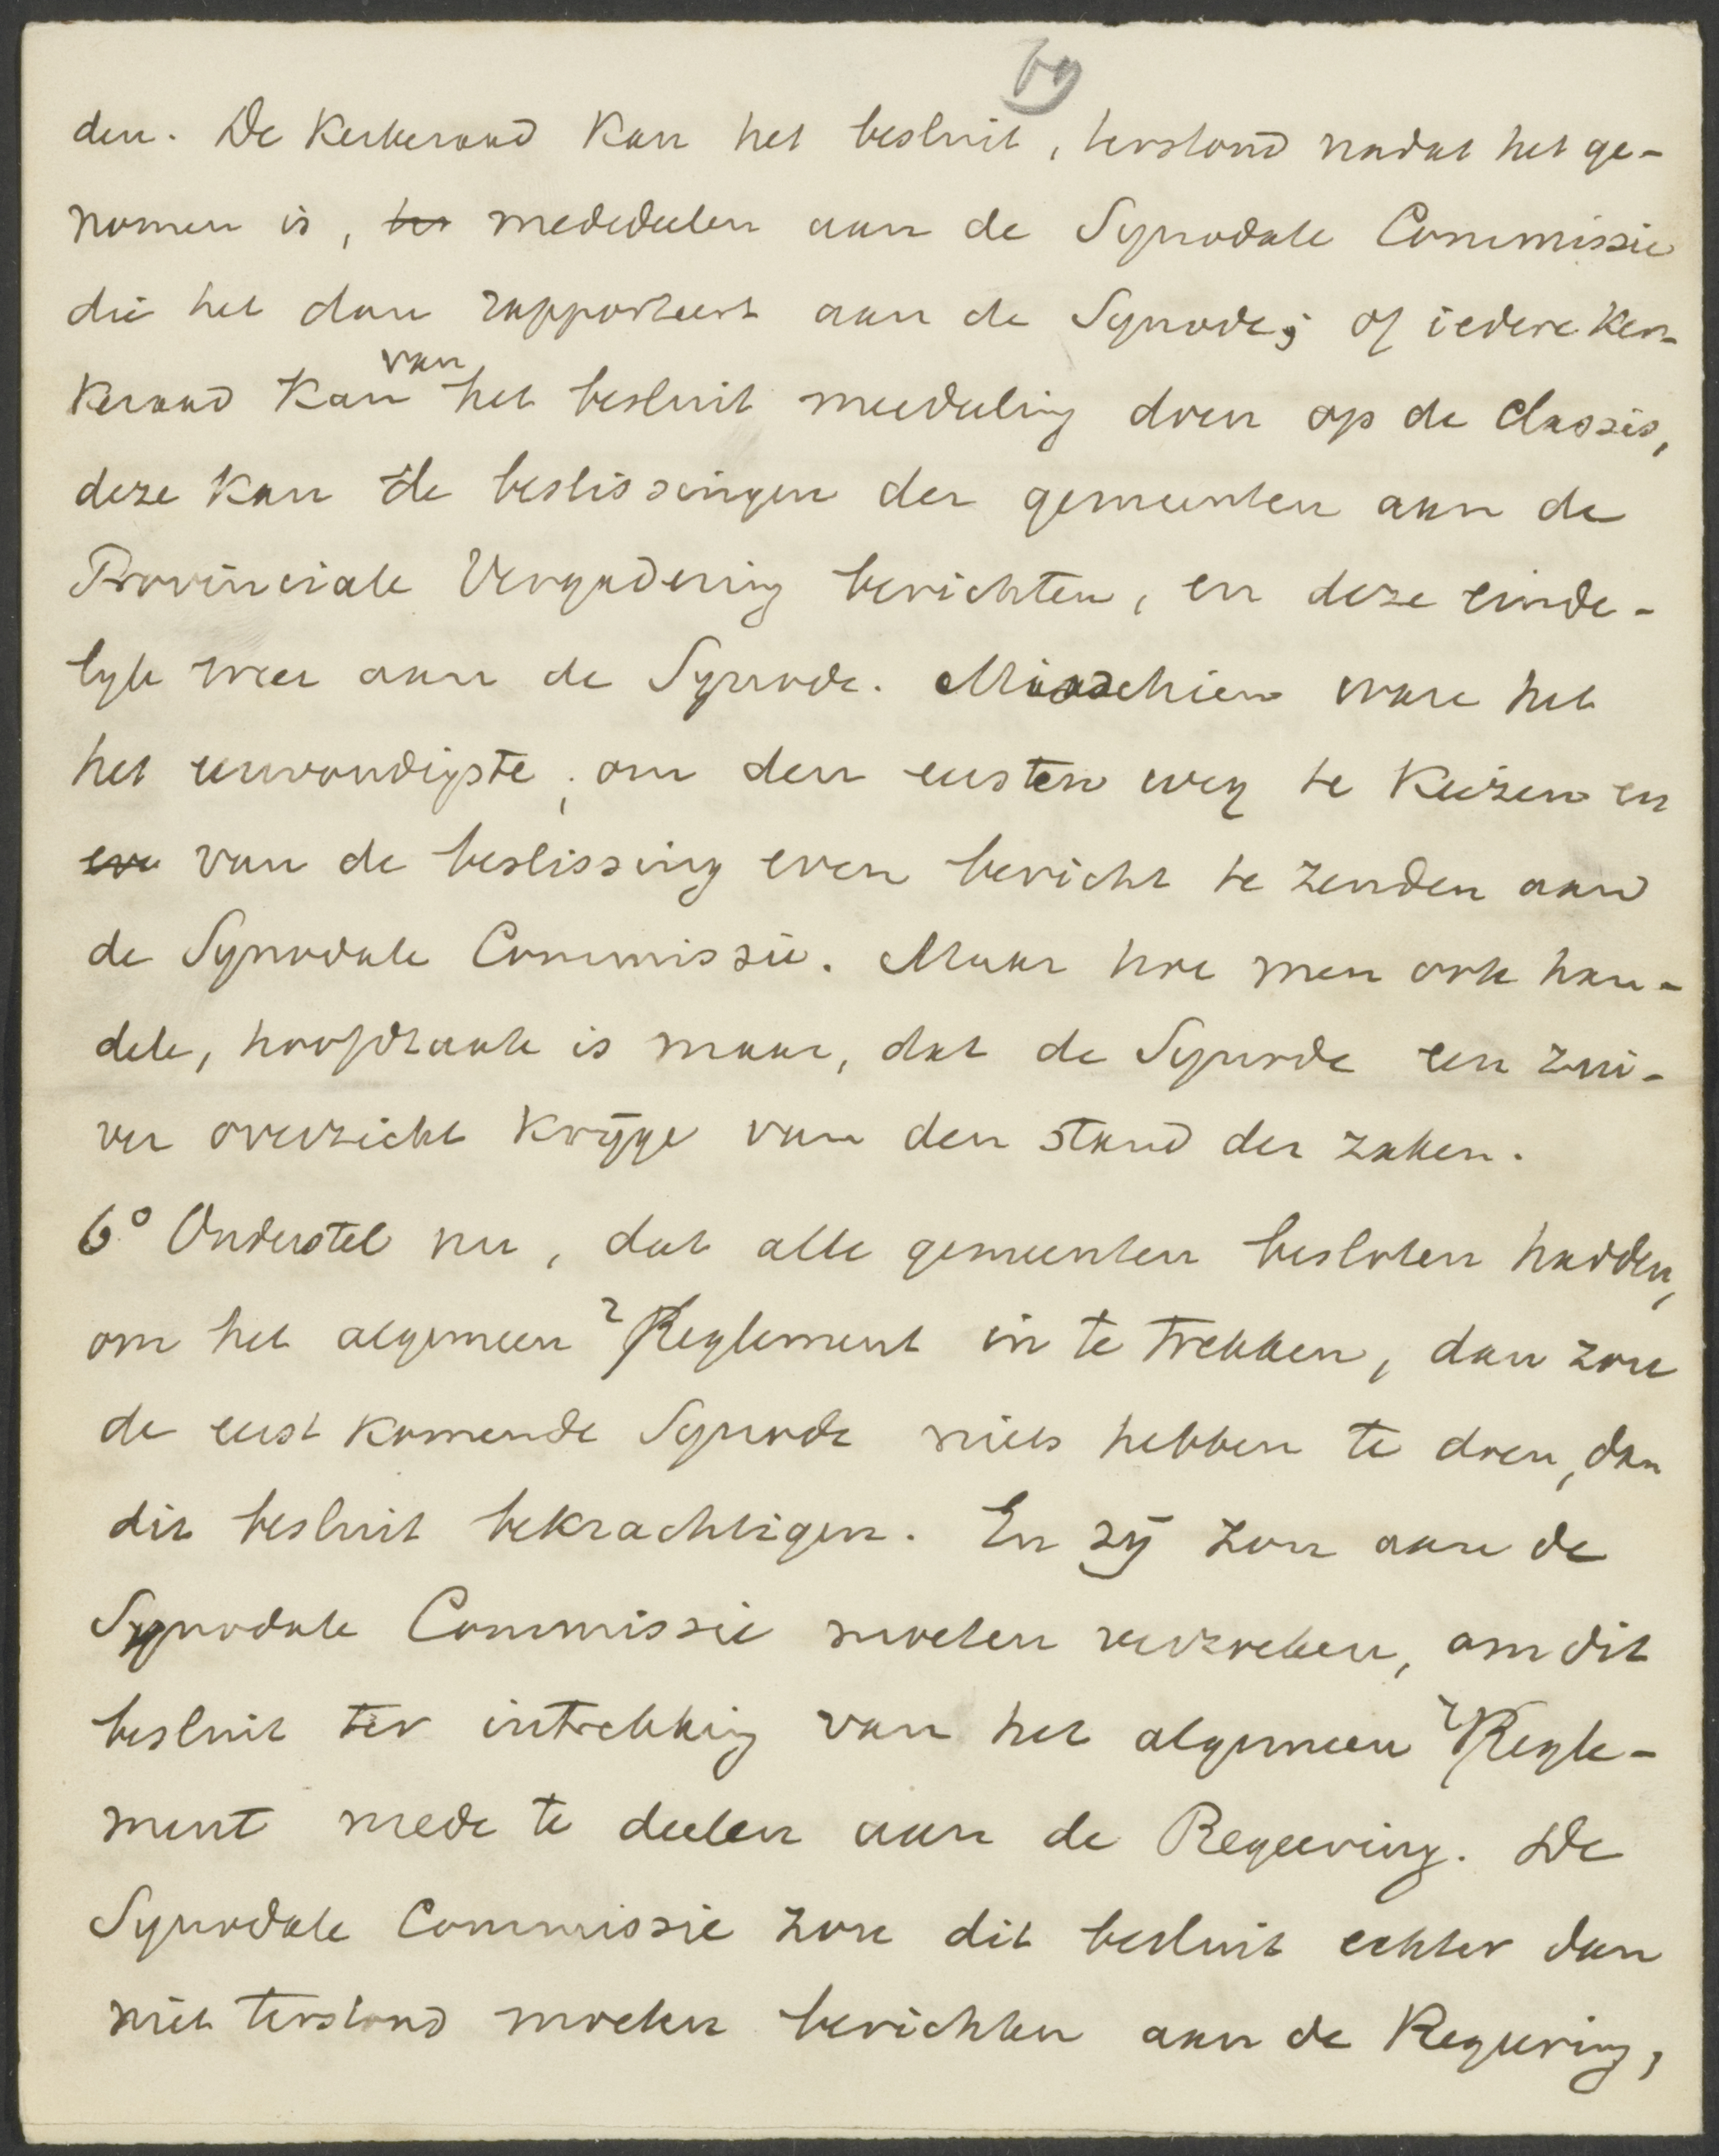 den. De Kerkeraad kan het besluit, terstond nadat het ge-
nomen is, mededeelen aan de Synodale Commissie
die het dan rapporteert aan de Synode; of iedere Ker-
keraad kan van het besluit meedeeling doen op de Classis,
deze kan de beslissingen der gemeenten aan de
Provinciale Vergadering berichten, en deze einde-
lyk weer aan de Synode. Misschien ware het
het eenvoudigste, om den eersten weg te kiezen en
van de beslissing even bericht te zenden aan
de Synodale Commissie. Maar hoe men ook han-
dele, hoofdzaak is maar, dat de Synode een zui-
ver overzicht kryge van den stand der zaken.
6° Onderstel nu, dat alle gemeenten besloten hadden,
om het algemeen Reglement in te trekken, dan zou
de eerst komende Synode niets hebben te doen, dan
dit besluit bekrachtigen. En zy zou aan de
Synodale Commissie moeten verzoeken, om dit
besluit ter intrekking van het algemeen Regle-
ment mede te deelen aan de Regeering. De
Synodale Commissie zou dit besluit echter dan
niet terstond moeten berichten aan de Regeering,